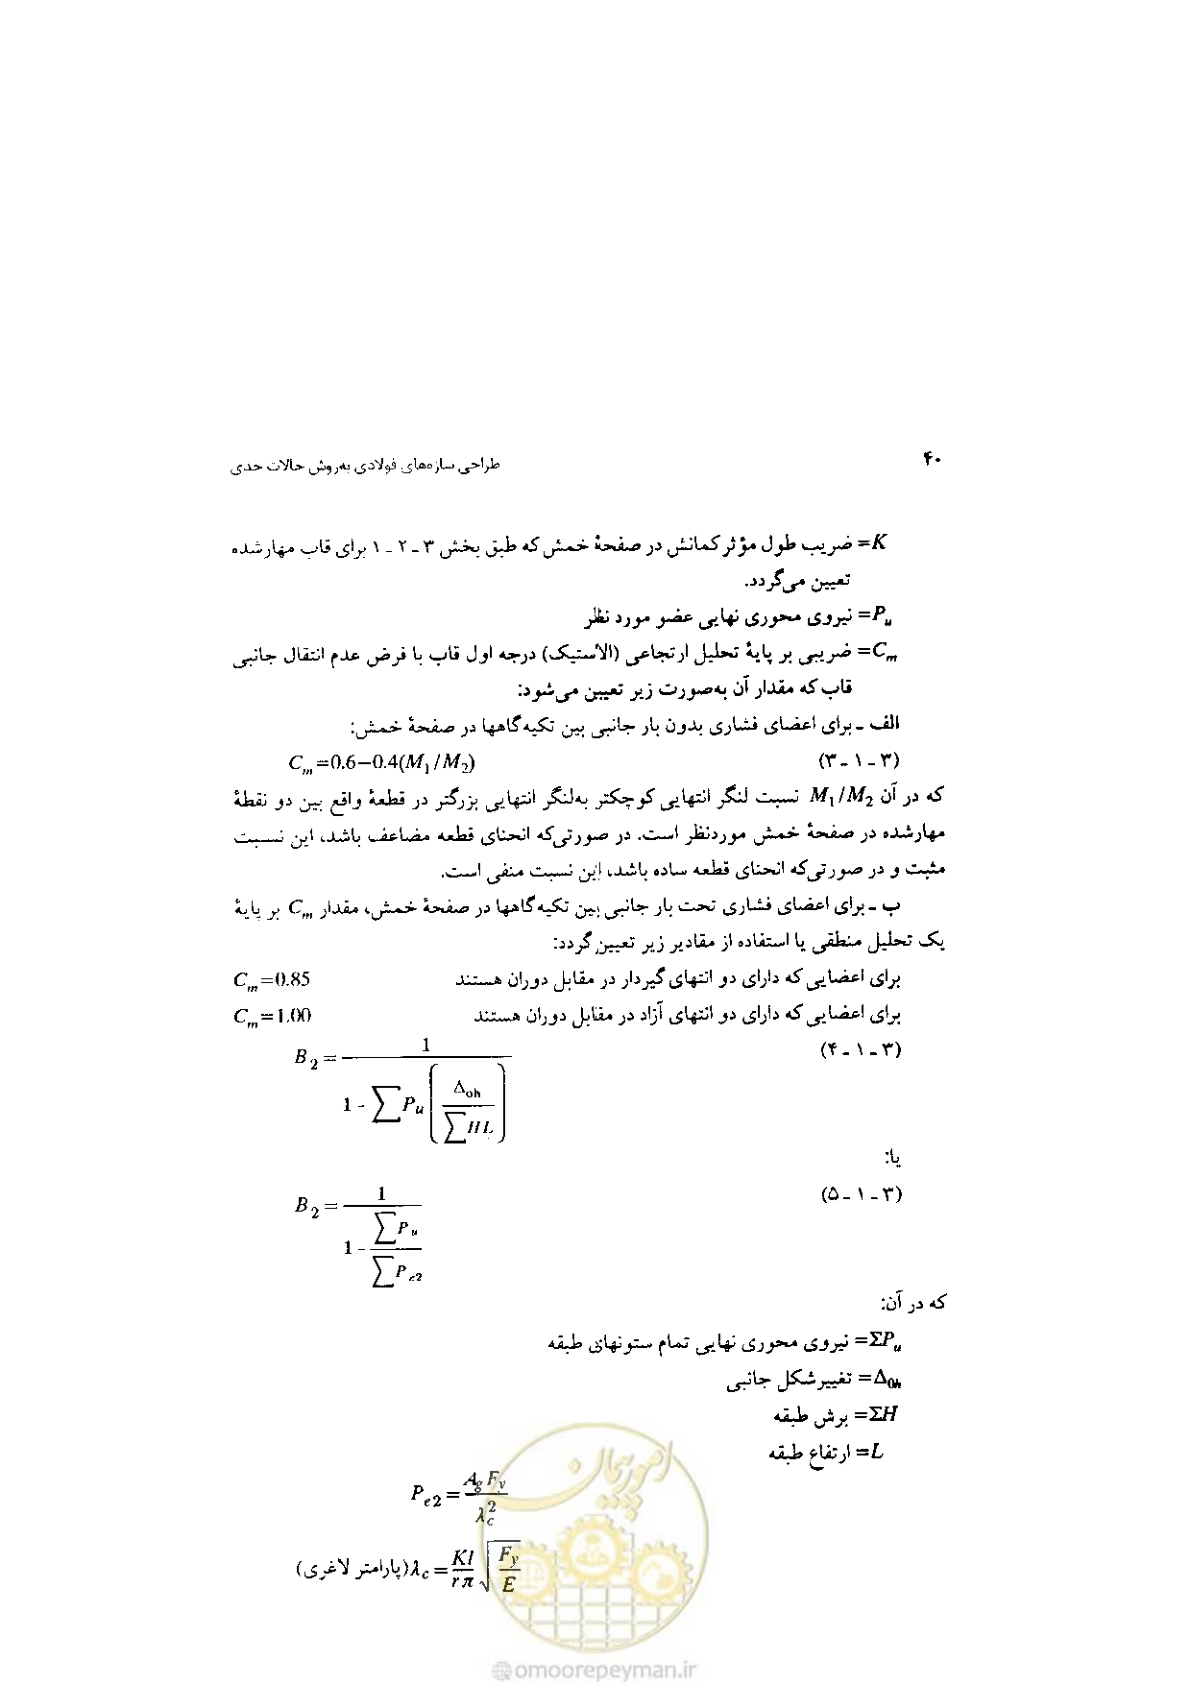 ۴۰ طراحی سازه‌های فولادی به‌روش حالات حدی
K= ضریب طول مؤثر کمانش در صفحهٔ خمش که طبق بخش ۳ ـ ۲ ـ ۱ برای قاب مهارشده
تعیین می‌گردد.
Pu= نیروی محوری نهایی عضو مورد نظر
Cm= ضریبی بر پایهٔ تحلیل ارتجاعی (الاستیک) درجه اول قاب با فرض عدم انتقال جانبی
قاب که مقدار آن به‌صورت زیر تعیین می‌شود:
الف ـ برای اعضای فشاری بدون بار جانبی بین تکیه‌گاهها در صفحهٔ خمش:
(۳ ـ ۱ ـ ۳) Cm=0.6−0.4(M1/M2)
که در آن M1/M2 نسبت لنگر انتهایی کوچکتر به‌لنگر انتهایی بزرگتر در قطعهٔ واقع بین دو نقطهٔ
مهارشده در صفحهٔ خمش موردنظر است. در صورتی‌که انحنای قطعه مضاعف باشد، این نسبت
مثبت و در صورتی‌که انحنای قطعه ساده باشد، این نسبت منفی است.
ب ـ برای اعضای فشاری تحت بار جانبی بین تکیه‌گاهها در صفحهٔ خمش، مقدار Cm بر پایهٔ
یک تحلیل منطقی یا استفاده از مقادیر زیر تعیین گردد:
برای اعضایی که دارای دو انتهای گیردار در مقابل دوران هستند Cm=0.85
برای اعضایی که دارای دو انتهای آزاد در مقابل دوران هستند Cm=1.00
(۳ ـ ۱ ـ ۴) B2 = 1 / (1 - ∑Pu (Δoh / ∑HL))
یا:
(۳ ـ ۱ ـ ۵) B2 = 1 / (1 - ∑Pu / ∑Pe2)
که در آن:
ΣPu= نیروی محوری نهایی تمام ستونهای طبقه
Δ0h= تغییرشکل جانبی
ΣH= برش طبقه
L= ارتفاع طبقه
Pe2 = AgFy / λc²
(پارامتر لاغری) λc = Kl/rπ √(Fy/E)
امور پیمان
@omoorepeyman.ir